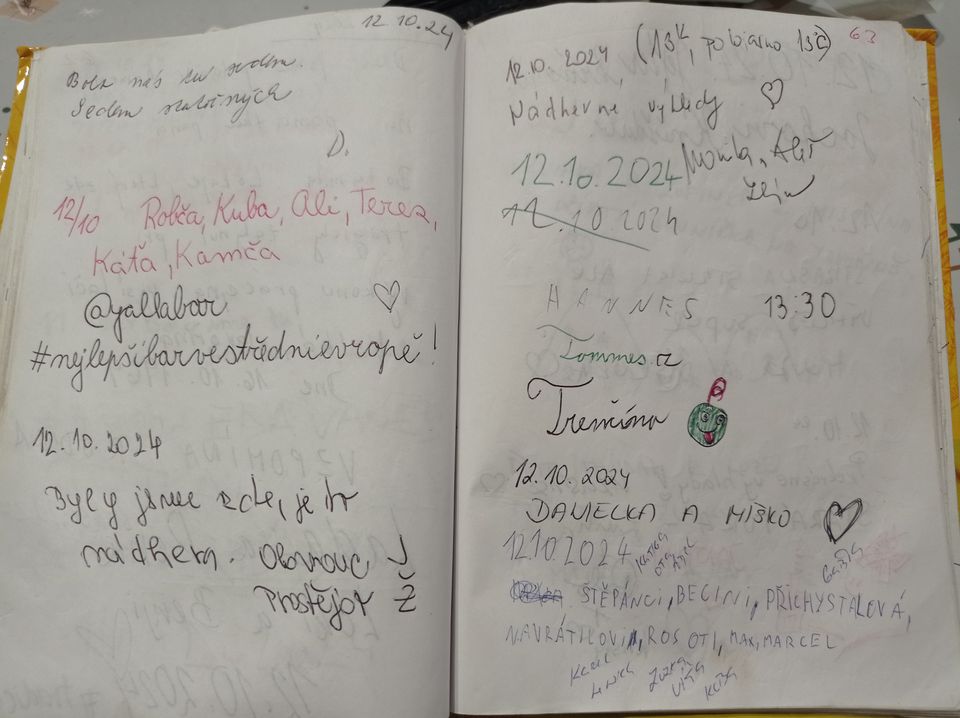 12.10.24
Bolo nás tu sedem.
Sedem statočných
D.
12/10 Robča, Kuba, Ali, Terez,
Káťa, Kamča
@yallabar
#nejlepšíbarvestředníevropě!
12.10.2024
Byly jsme zde, je to
nádhera. Olomouc J
Prostějov Ž
63
12.10. 2024 (13K, polojasno 13°C)
Nádherné výhledy
12.10.2024
Monika, Aleš
Zlín
12.10 2024
HANNES 13:30
Tommes z
Trenčína
12.10.2024
DANIELKA A MIŠKO
12.10.2024
ŠTĚPÁNCI, BECINI, PŘICHYSTALOVÁ,
NAVRÁTILOVI, ROSOTI, MAX, MARCEL